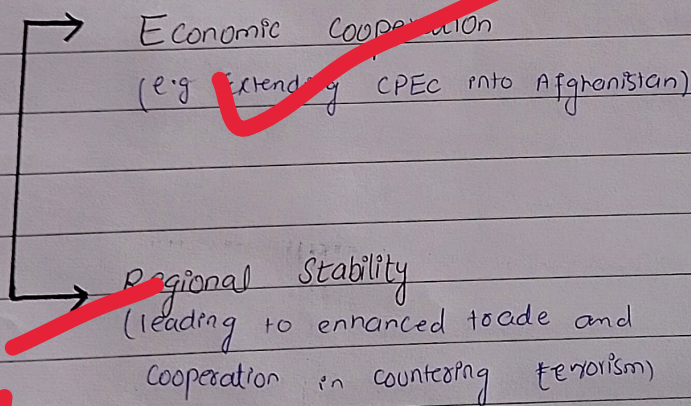 Economic Cooperation
(e.g Extending CPEC into Afghanistan)
Regional Stability
(leading to enhanced trade and
Cooperation in countering terrorism)